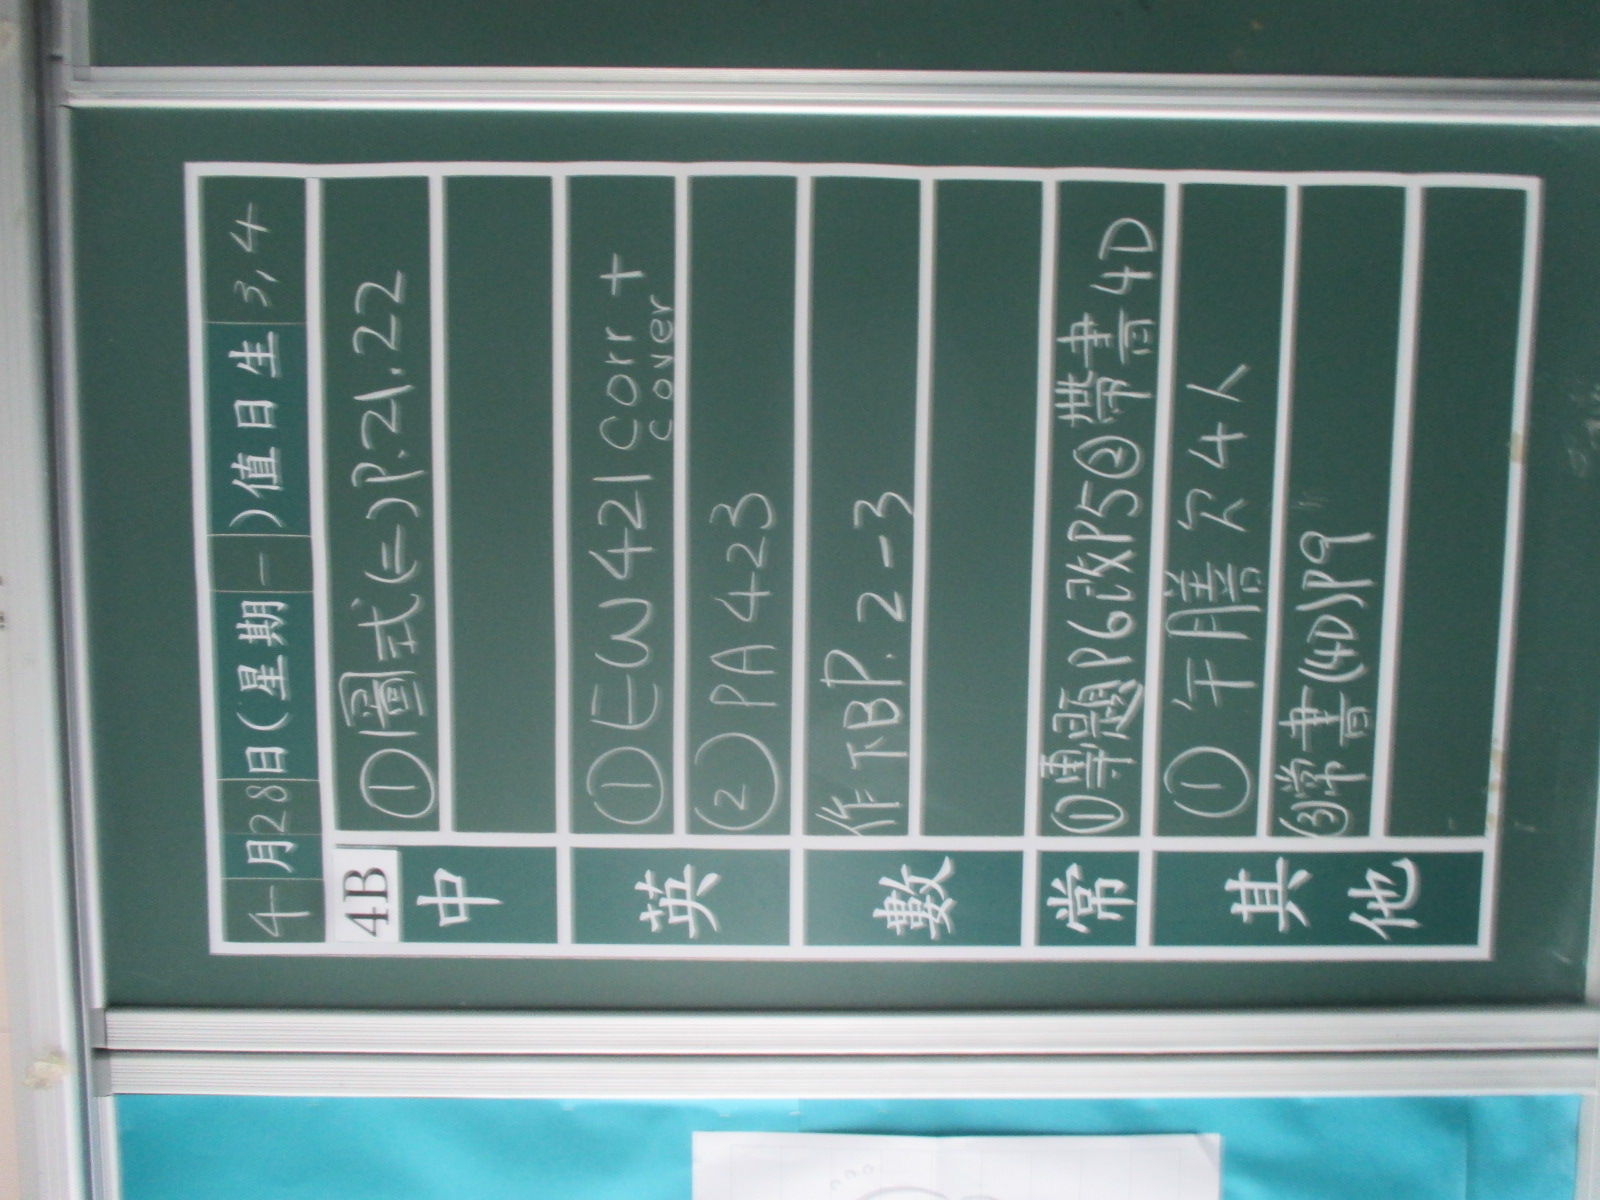 4月28日(星期一)值日生 3,4
4B
中
①圖式(二)P.21.22
英
①EW421 corr +
cover
②PA423
數
作下BP.2-3
常
①專題P6改P5②帶書4D
其他
①午膳欠4人
③常書(4D)P9